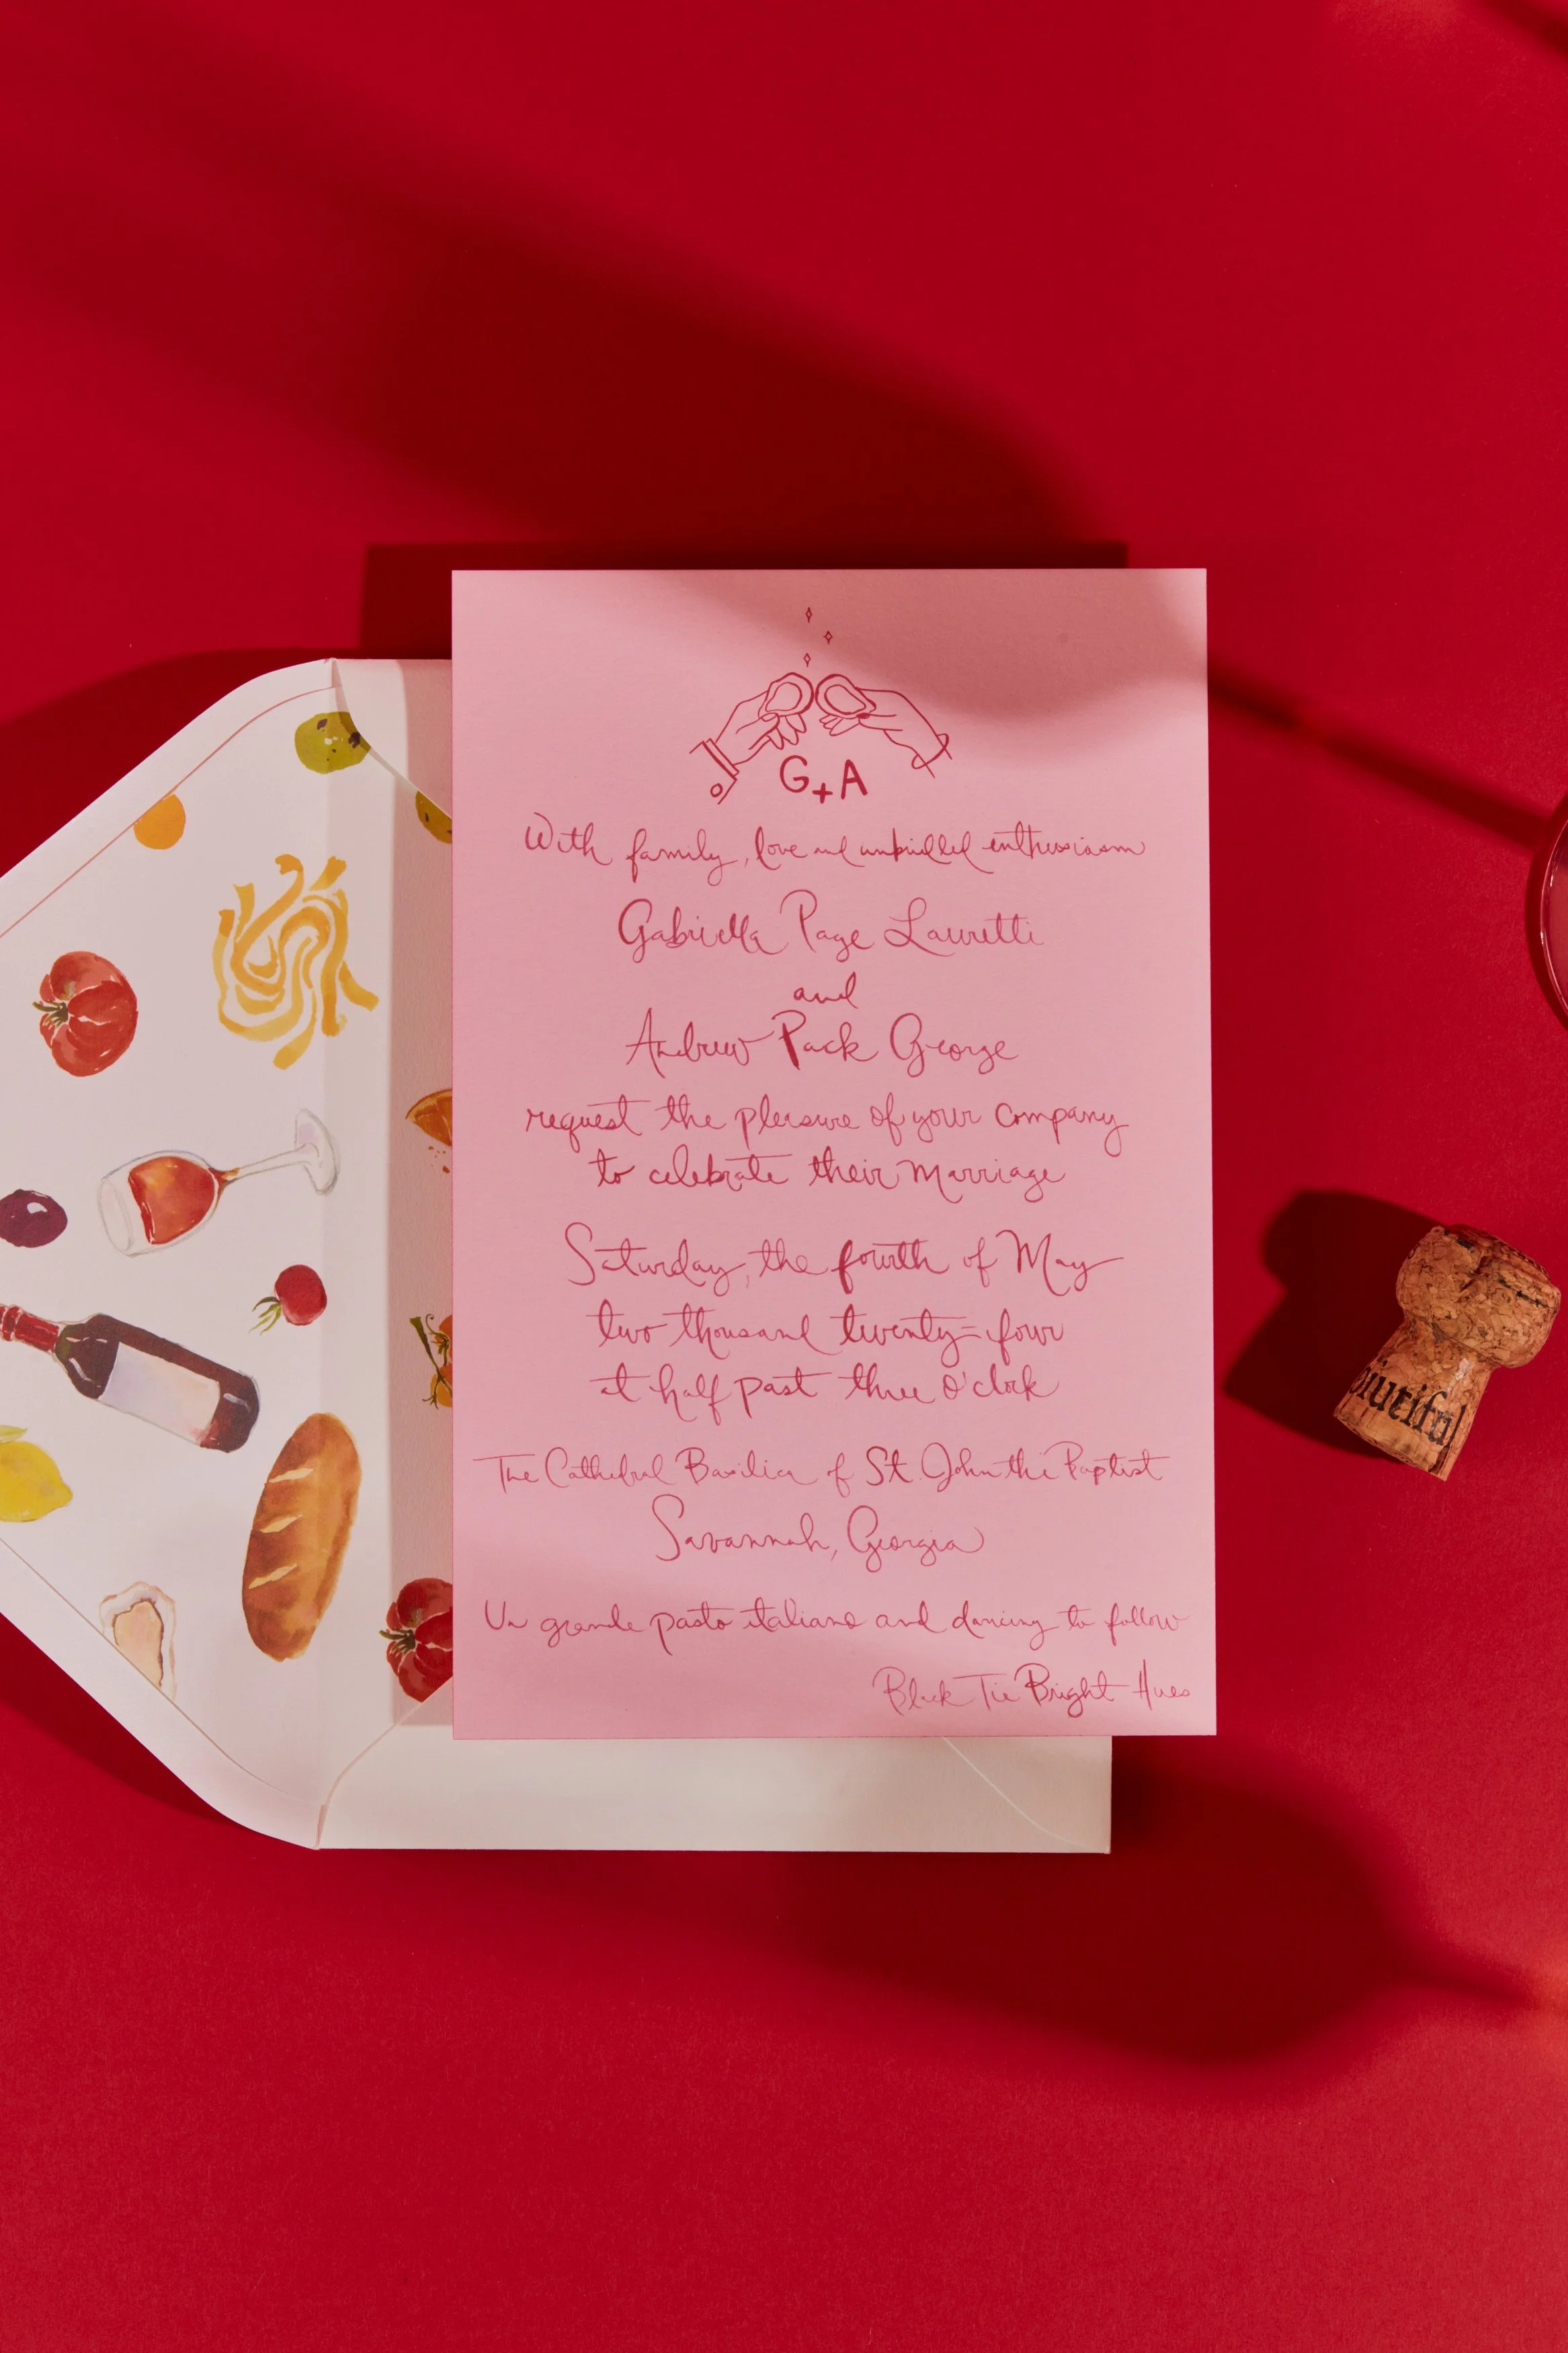 G+A
With family, love and unbridled enthusiasm
Gabriella Page Lauretti
and
Andrew Pack George
request the pleasure of your company
to celebrate their marriage
Saturday, the fourth of May
two thousand twenty-four
at half past three o'clock
The Cathedral Basilica of St. John the Baptist
Savannah, Georgia
Un grande pasto italiano and dancing to follow
Black Tie Bright Hues